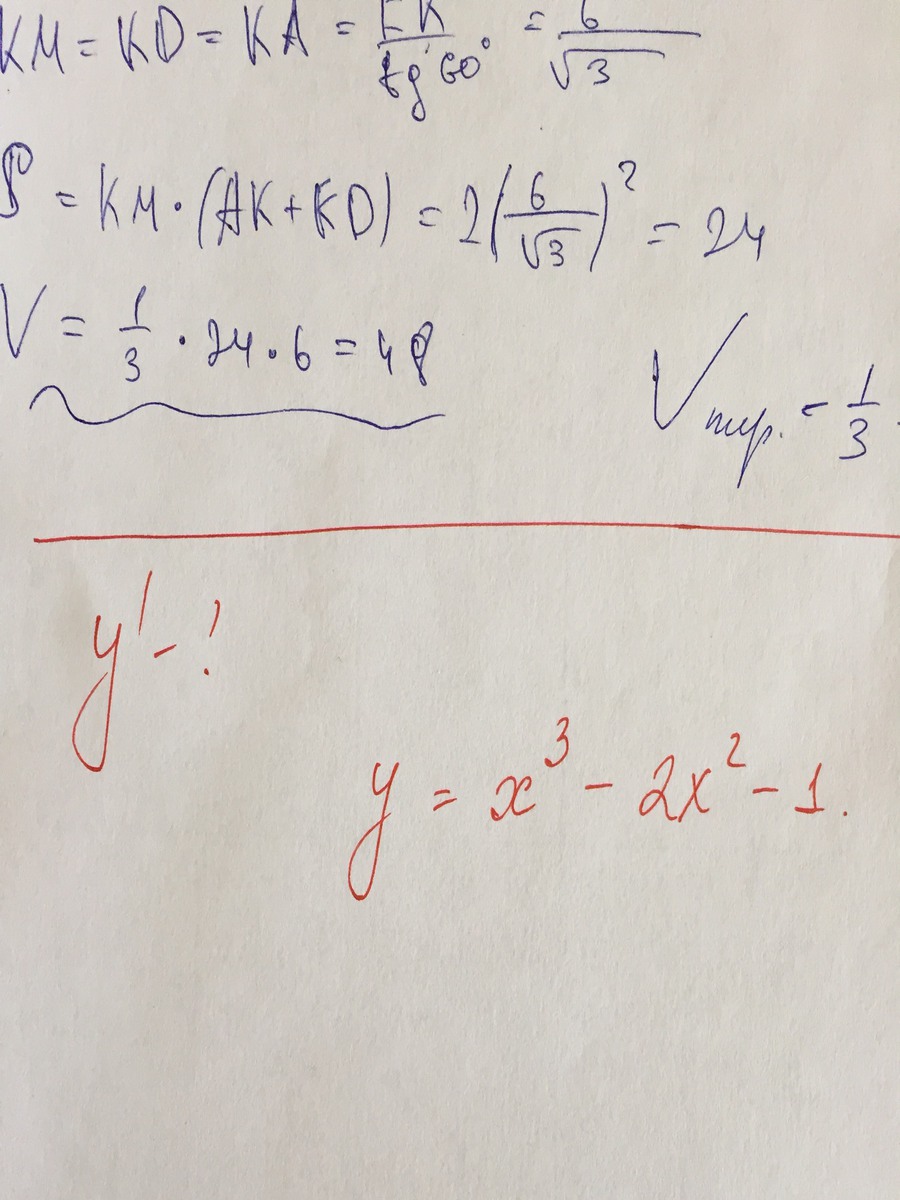 KM = KD = KA = EK / tg 60° = 6 / √3
S = KM · (AK + KD) = 2(6/√3)² = 24
V = 1/3 · 24 · 6 = 48
Vпир. = 1/3 ·
y' - ?
y = x³ - 2x² - 1.